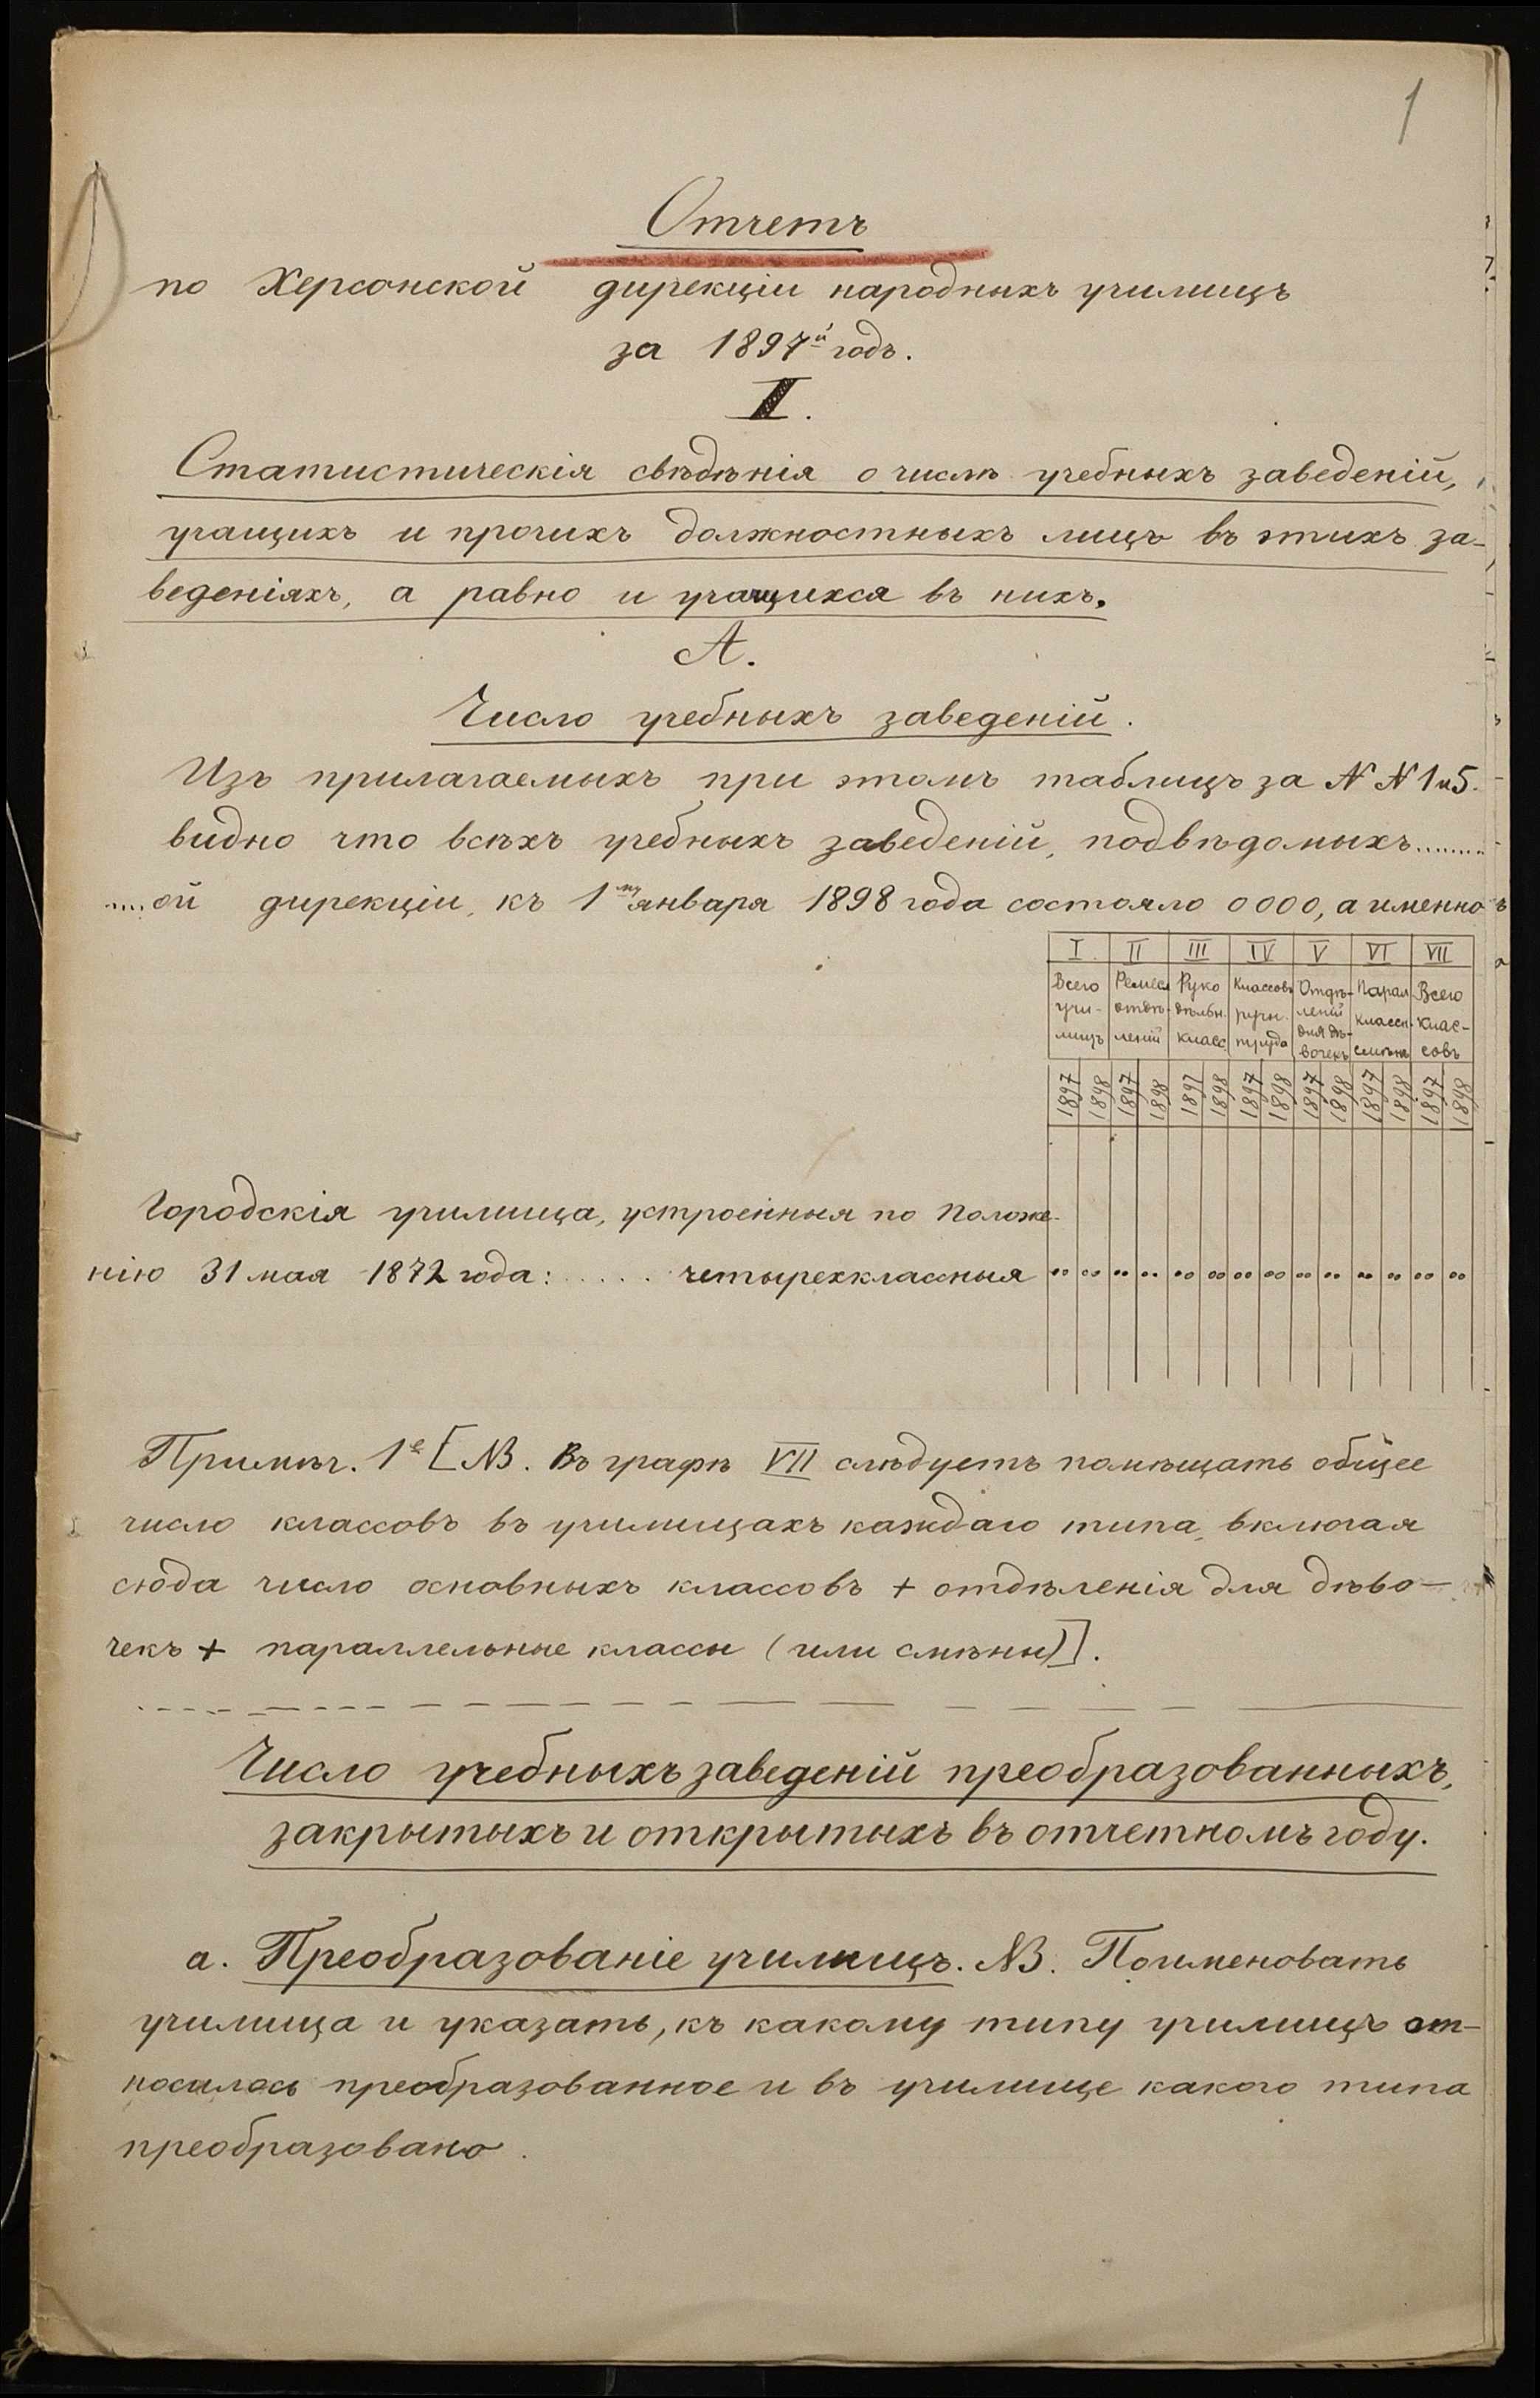 1
Отчетъ
по Херсонской дирекціи народныхъ училищъ
за 1897й годъ.
I.
Статистическія свѣдѣнія о числѣ учебныхъ заведеній,
учащихъ и прочихъ должностныхъ лицъ въ этихъ за-
веденіяхъ, а равно и учащихся въ нихъ.
А.
Число учебныхъ заведеній.
Изъ прилагаемыхъ при этомъ таблицъ за N N 1 и 5.
видно что всѣхъ учебныхъ заведеній, подвѣдомыхъ........
....ой дирекціи, къ 1му января 1898 года состояло 0000, а именно
I II III IV V VI VII
Всего Ремесл Руко Классовъ Отдѣ- Парал Всего
учи- отдѣ- дѣльн. ручн. леній классн. клас-
лищъ леній класс труда для дѣ- смѣнъ совъ
вочекъ
1897 1898 1897 1898 1897 1898 1897 1898 1897 1898 1897 1898 1897 1898
Городскія училища, устроенныя по Положе-
нію 31 мая 1872 года: ..... четырехклассныя
Примѣч. 1е [NB. Въ графѣ VII слѣдуетъ помѣщать общее
число классовъ въ училищахъ каждаго типа, включая
сюда число основныхъ классовъ + отдѣленія для дѣво-
чекъ + параллельные классы (или смѣны)].
Число учебныхъ заведеній преобразованныхъ,
закрытыхъ и открытыхъ въ отчетномъ году.
а. Преобразованіе училищъ. NB. Поименовать
училища и указать, къ какому типу училищъ от-
носилось преобразованное и въ училище какого типа
преобразовано.